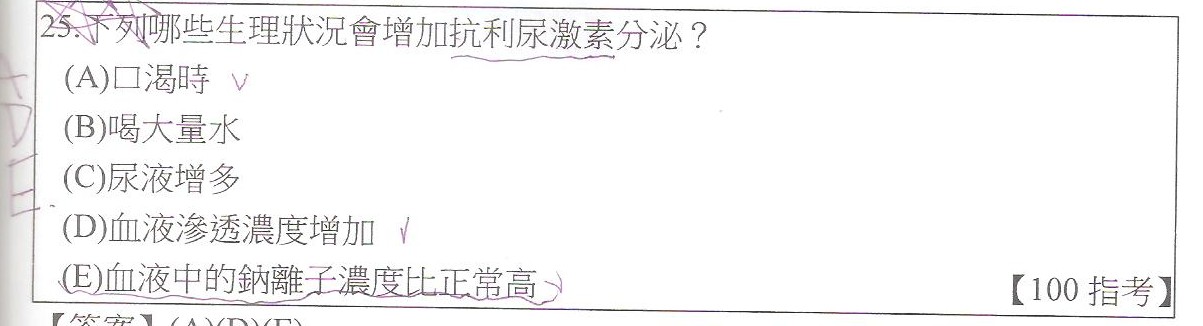 25.下列哪些生理狀況會增加抗利尿激素分泌？
(A)口渴時 ✓
(B)喝大量水
(C)尿液增多
(D)血液滲透濃度增加 ✓
(E)血液中的鈉離子濃度比正常高
【100 指考】
【答案】(A)(D)(E)
A
D
E